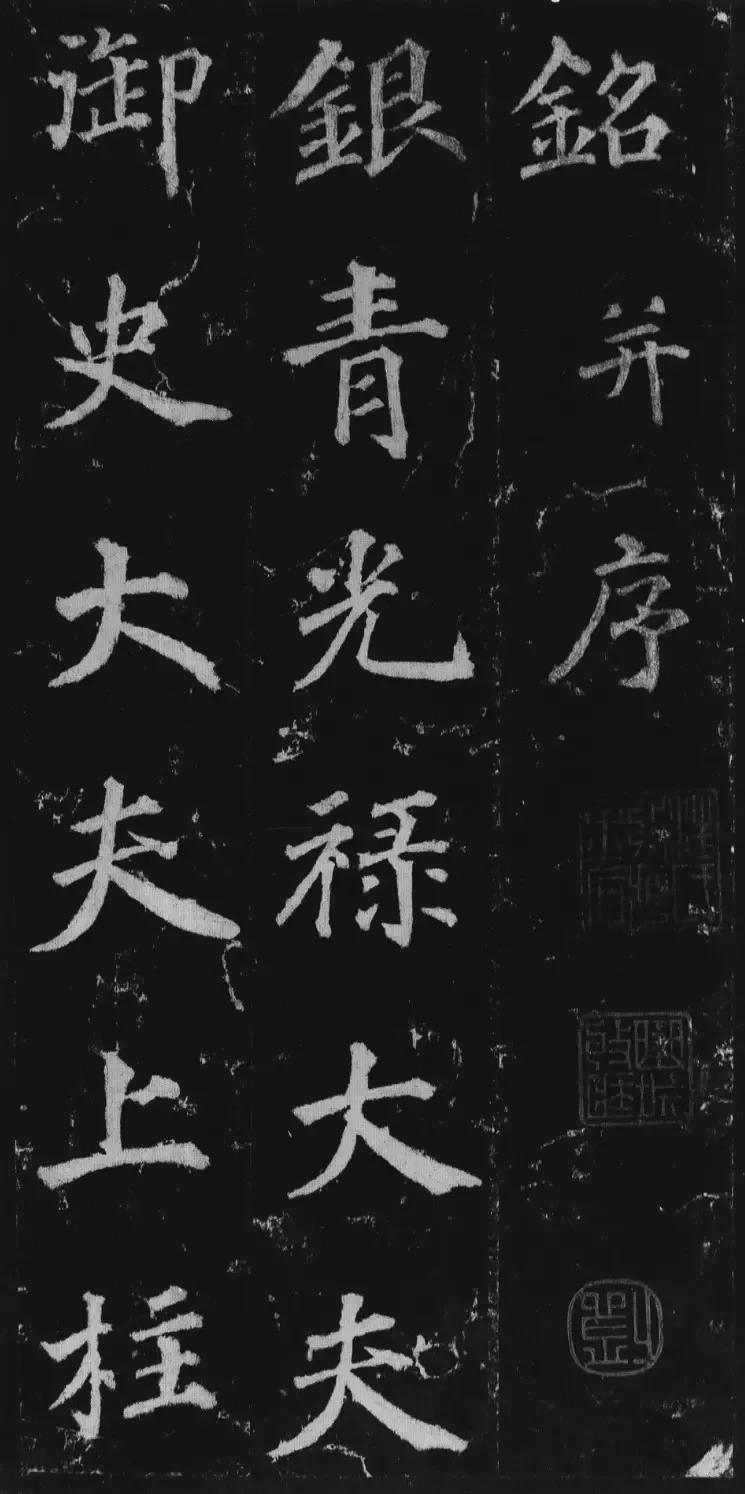 銘并序
銀青光禄大夫
御史大夫上柱